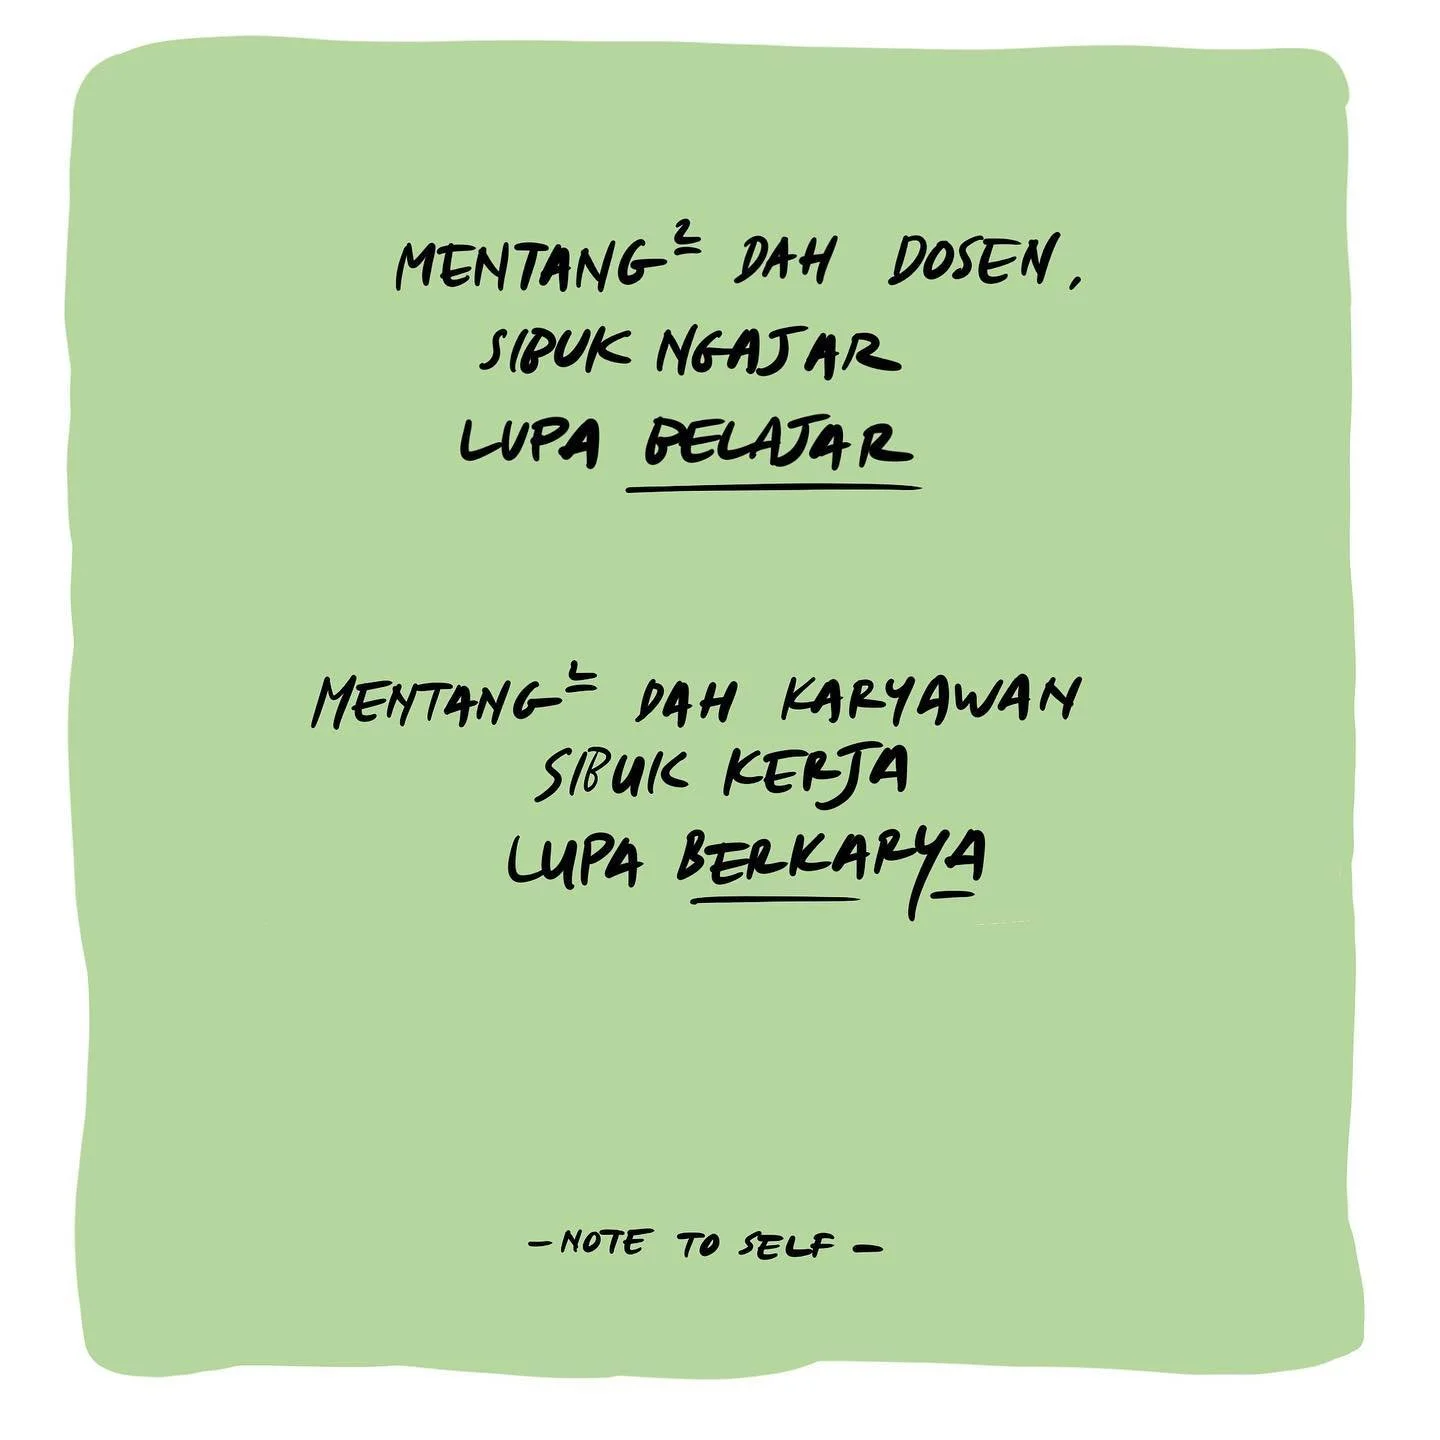 MENTANG² DAH DOSEN,
SIBUK NGAJAR
LUPA BELAJAR
MENTANG² DAH KARYAWAN
SIBUK KERJA
LUPA BERKARYA
- NOTE TO SELF -